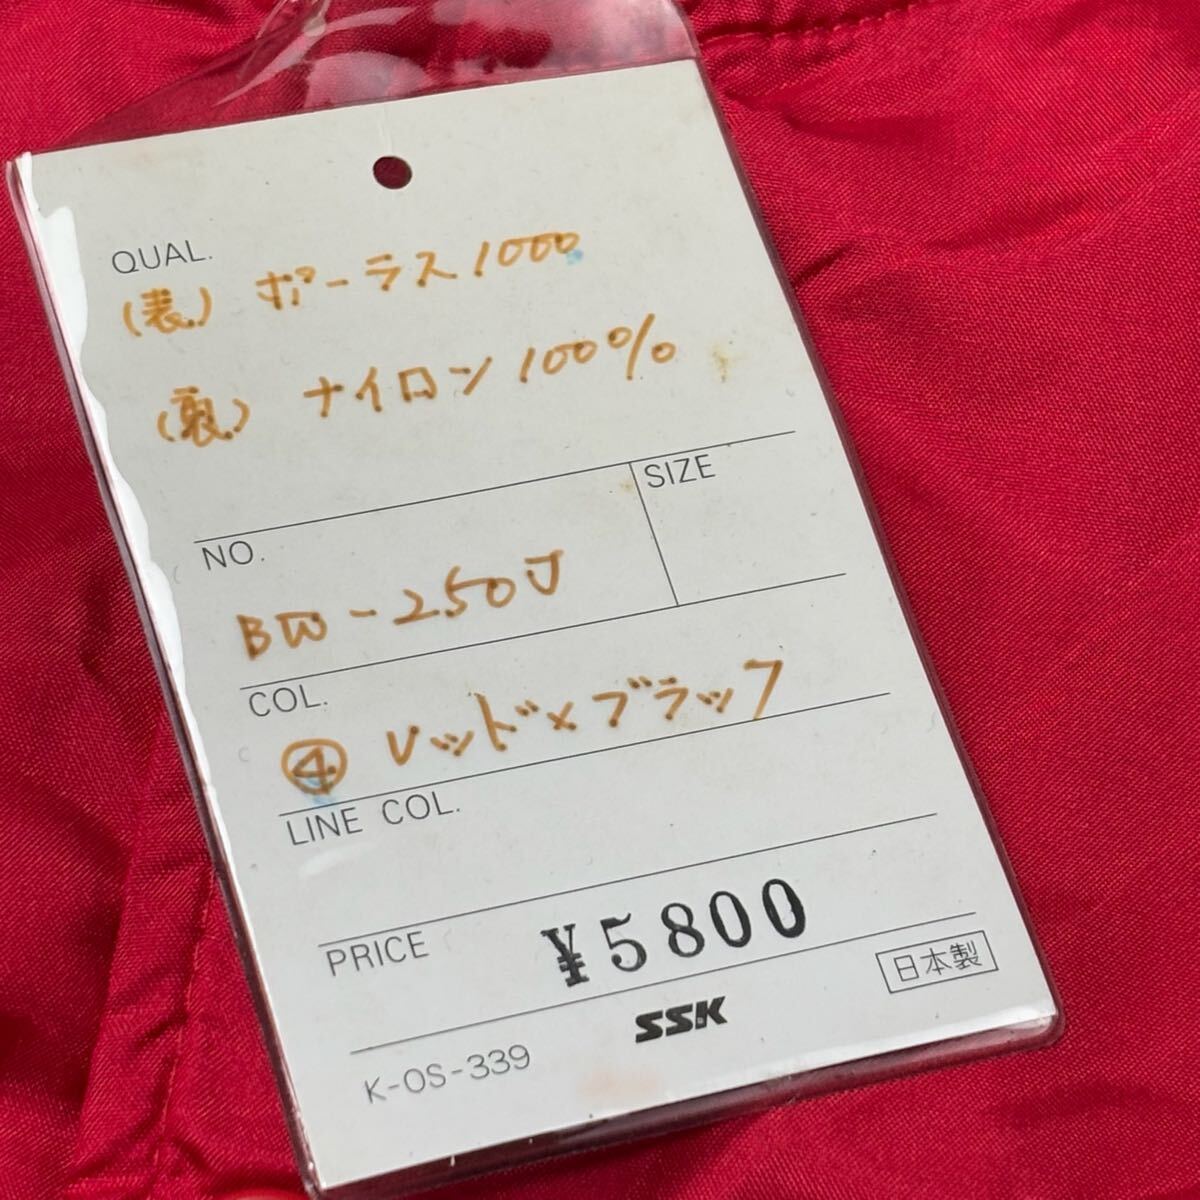 QUAL.
(表) ポーラス1000
(裏) ナイロン100%
NO.
SIZE
BW-250J
COL.
④ レッド×ブラック
LINE COL.
PRICE
¥5800
日本製
SSK
K-OS-339